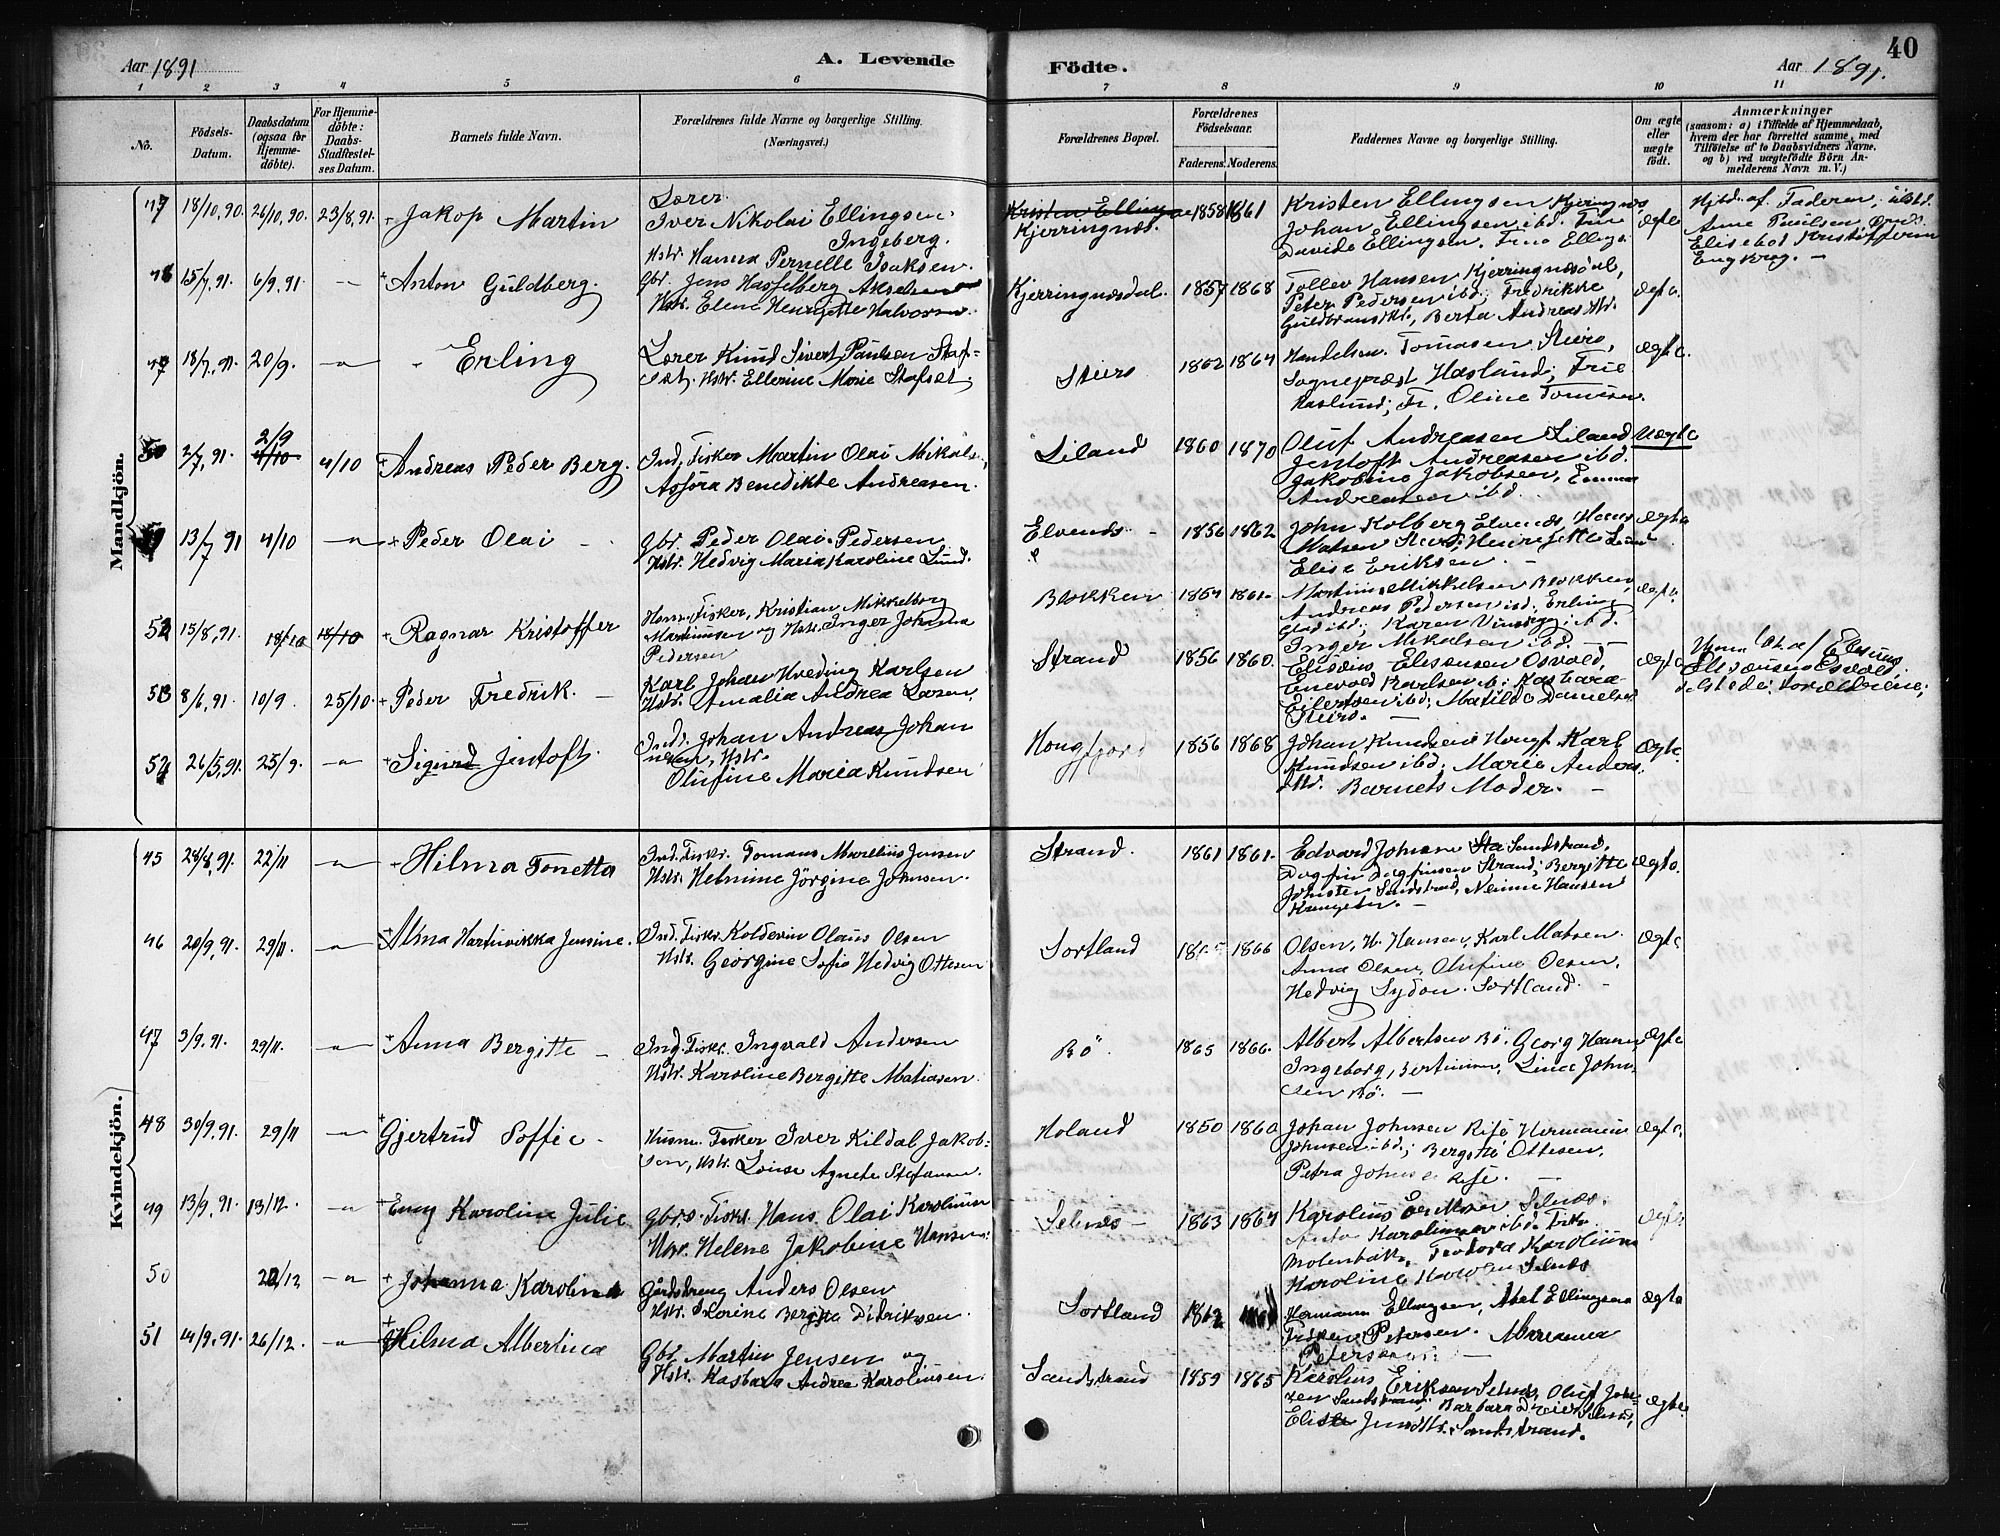 Aar 1891
A. Levende
Födte.
Aar 1891.
40
1 2 3 4 5 6 7 8 9 10 11
No.
Födsels-Datum.
Daabsdatum (ogsaa for Hjemme-döbte).
For Hjemme-döbte: Daabs-Stadfæstel-ses Datum.
Barnets fulde Navn.
Forældrenes fulde Navne og borgerlige Stilling. (Næringsvei.)
Forældrenes Bopæl.
Forældrenes Födselsaar.
Faderens. Moderens.
Faddernes Navne og borgerlige Stilling.
Om ægte eller uægte födt.
Anmærkninger
(saasom: a) i Tilfælde af Hjemmedaab, hvem der har forrettet samme, med Tilföielse af to Daabsvidners Navne, og b) ved uægtefödte Börn An-melderens Navn m. V.)
Mandkjön.
47 18/10, 90. 26/10, 90. 23/8, 91. Jakop Martin
Lærer
Iver Nikolai Ellingsen
Ingeberg.
Hstr. Hanna Pernelle Isaksen.
Kristen Ellingsen
Kjerringnæs. 1858 1861
Kristen Ellingsen Kjeringnæs
Johan Ellingsen ibd. Frue
Davida Ellingsen, Frue Ellings.
ægte
Hjbd. af Faderen,
Anne Paulsen
Elisebet Kristoffersen
Engkrog. —
15/7, 91. 6/9, 91. — Anton Guldberg.
Gbr. Jens Hasselberg Akselsen
Hstr. Elene Henrijette Halvorsen.
Kjerringnæsdal. 1857 1868
Tollev Hansen, Kjerringnæsdal,
Peter Pedersen ibd; Fredrikke
Guldbransdtr., Berta Andreasdtr.
ægte.
18/7, 91. 20/9. — Erling
Lærer Knud Sivert Paulsen Staf-
set, Hstr. Ellerine Marie Stafset.
Steiro 1862 1864
Handelsm. Tomasen Steiro,
Sognepræst Haslund; Frue
Haslund; Fr. Oline Tomæsen.
ægte.
50 2/7, 91. 2/9 4/10 4/10 Andreas Peder Berg.
Ind. Fisker Martin Olai Mikals.,
Assora Benedikte Andreasen.
Liland 1860 1870
Oluf Andreasen Liland
Jentoft Andreasen ibd.
Jakobine Jakobsen, Emma
Andreasen ibd.
Uægte
13/7 91 4/10 Peder Olai —
Gbr. Peder Olai Pedersen
Hstr. Hedvig Maria Karoline Lund.
Elvenæs — 1856 1862
John Kolberg Elvenæs, Hans
Matsen Steiro; Henrijette Lund
Elise Eriksen. —
ægte
52 15/8, 91. 18/10 18/10 Ragnar Kristoffer
Fisker, Kristian Mikkelborg
Martinusen og Hstr. Inger Johanna
Pedersen
Blokken 1864 1861.
Martinus Mikkelsen Blokken,
Andreas Pedersen ibd; Erling
ibd; Karen ibd.
Inger Mikalsen ibd. —
ægte.
53 8/6, 91. 10/9 25/10. Peder Fredrik. —
Karl Johan Hveding Karlsen
Hstr. Amalia Andrea Larsen
Strand 1856 1860.
Elisæus Elisæusen Osvold,
Enevold Karlsen ib; Kasbara
Eilertsen ibd; Matilde Danielsen
Steiro. —
ægte
Elisæus
Elisæusen Osvold,
tilstede: Forældrene;
54 26/5, 91. 25/9. Sigurd Jentoft.
Ind. Johan Andreas Johan
nesen, Hstr.
Olufine Maria Knudsen
Hongfjord 1856 1868
Johan Knudsen Hongf. Karl
Knudsen ibd; Marie Anders
dtr. Barnets Moder. —
ægte.
Kvindekjön.
45 28/8, 91. 22/11 Hilma Tonetta
Ind. Fiskr. Tomas Marelius Jensen
Hstr. Helmine Jörgine Johnsen.
Strand. 1861 1861.
Edvard Johnsen Sandstrand,
Dagfin Dagfinsen Strand; Bergitte
Johnsen Sandstrand, Nennne Hansen
ægte.
46 20/9, 91. 29/11. Alma Hartvikka Jensine.
Ind. Fiskr. Koldevin Olaus Olsen
Hstr. Georgine Sofie Hedvig Ottesen
Sortland 1866
Olsen, H. Hansen, Karl Matsen
Anna Olsen, Olufine Olsen,
Hedvig Sydon. Sortland. —
ægte
47 3/9. 91. 29/11. Anna Bergitte —
Ind. Fiskr. Ingvald Andersen
Hstr. Karoline Bergitte Matiasen.
Bö 1865 1866.
Albert Albertsen Bö. Georg Hansen
Ingeborg Bertinusen, Lina John-
sen Bö. —
ægte
48 30/9, 91. 29/11 Gjertrud Soffie —
Husm. Fisker Iver Kildal Jakob-
sen, Hstr. Louise Agnete Stefansen.
Holand 1850 1860
Johan Johnsen Rise Hermanus
Johnsen ibd; Bergitte Ottesen,
Petra Johnsen Rise. —
ægte.
49 13/9, 91. 13/12. Emy Karoline Julie
Gbr.s. Fiskr. Hans Olai Karoliusen
Hstr. Helene Jakobine Hansen.
Selnæs — 1863 1864
Karolius Eriksen Selnæs,
Karoliusen ibd. Fiskr.
Teodora Karoliusen
Karoline Selnæs
ægte
50 20/12 Johanna Karolina
Gaardsdreng Anders Olsen
Hstr. Serine Bergitte Didriksen.
Sortland 1862
Hermann Ellingsen, Abel Ellingsen
Petersen. Marianna
Petersen —
ægte
51 14/9. 91. 26/12. Hilma Albertina
Gbr. Martin Jensen og
Hstr. Kasbara Andrea Karoliusen.
Sandstrand 1859 1865
Karolius Eriksen Selnæs, Oluf John-
sen Sandstrand, Barbara Selnæs,
Elise Jensdtr. Sandstrand.
ægte.